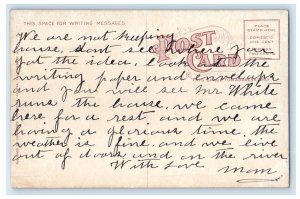 THIS SPACE FOR WRITING MESSAGES
POST
CARD
PLACE
STAMP HERE
DOMESTIC
ONE CENT
We are not keeping
house, dont see where you
got the idea. look at the
writing paper and envelops
and you will see Mr White
runs the house, we came
here for a rest. and we are
having a glorious time. the
weather is fine, and we live
out of doors and on the river
With Love
Mom